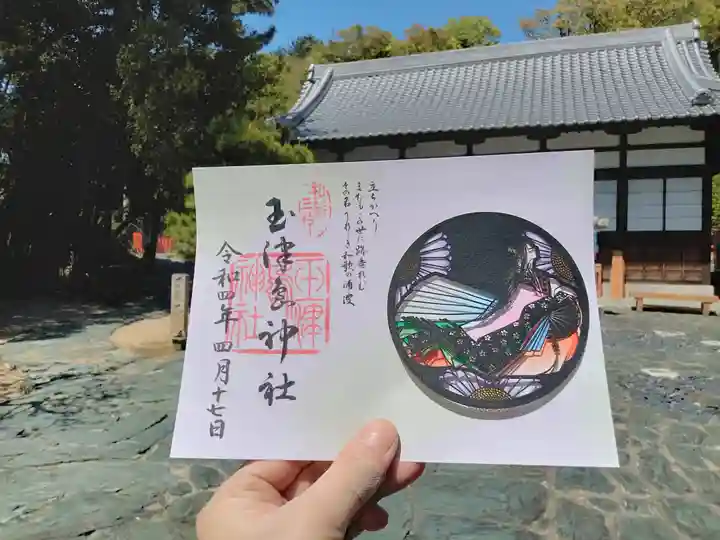 立ちかへり
またもこの世に跡垂れむ
その名うれしき和歌の浦波
玉津島神社
令和四年四月十七日